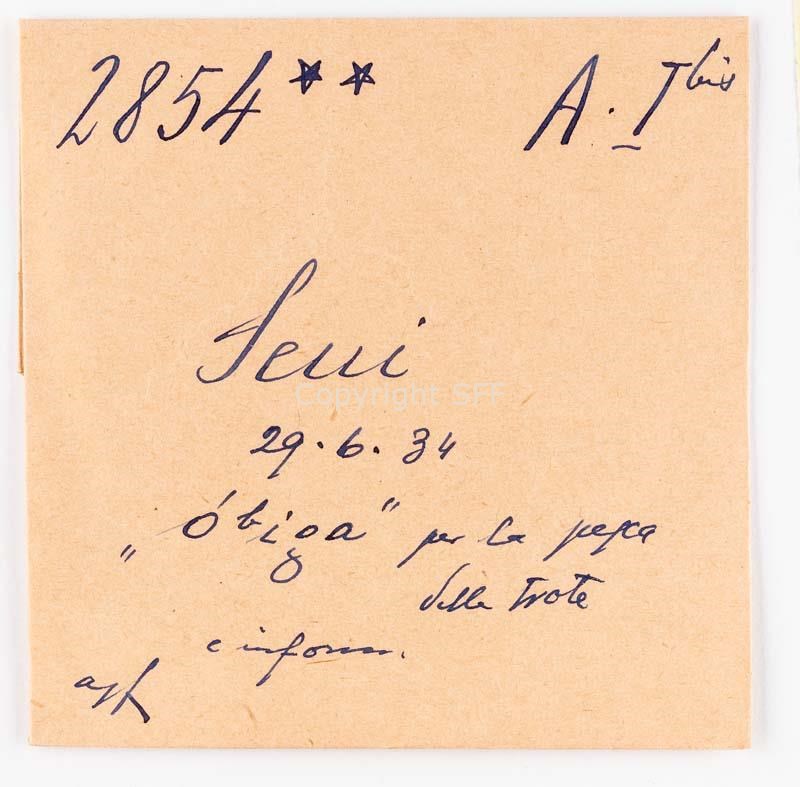 2854 ** A. I bis
Seui
Copyright SFF
29.6.34
"óbiga" per la pesca
delle trote
e inform.